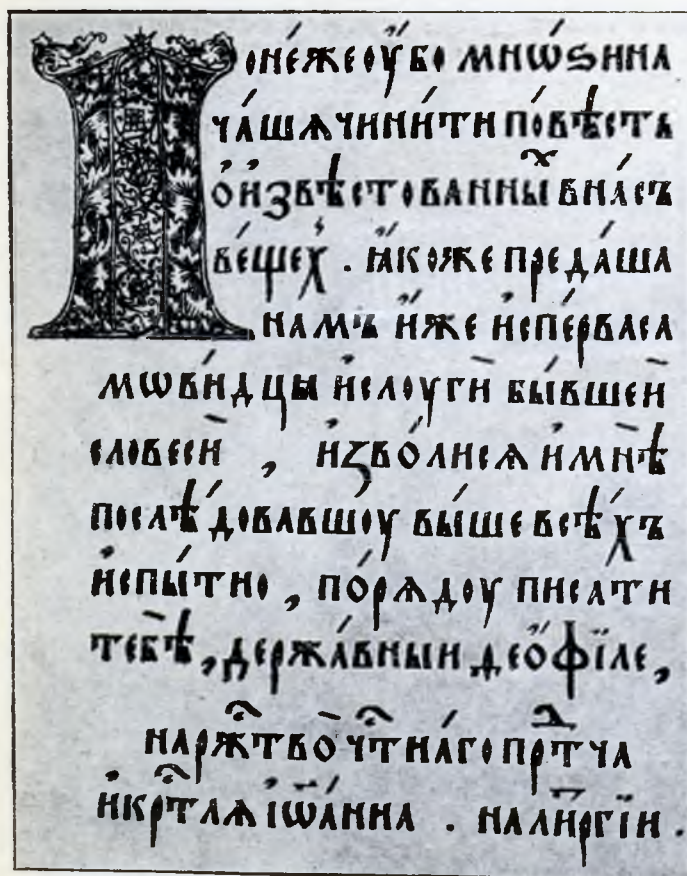 Поне́жеоу҆́бо мнѡ́ѕина
ча́шѧчини́ти по́вѣсть
ѡ҆и҆звѣ́стованныⷯ вна́съ
ве́щеⷯ. ꙗ҆́коже преда́ша
на́мъ и҆́же и҆спе́рваса
мѡви́дцы и҆слоугѝ бы́вшеи
словесѝ , и҆зво́лисѧ и҆мнѣ̀
послѣ́довавшоу вы́ше всѣ́хъ
и҆спы́тно , по́рѧдоу писати
тебѣ̀ , держа́вныи ѳео́фїле ,
нарⷤтво̀ чⷭ҇тна́го прⷣтча
и҆крⷭ҇тлѧ і҆ѡ́а́нна . налиⷮргїи .